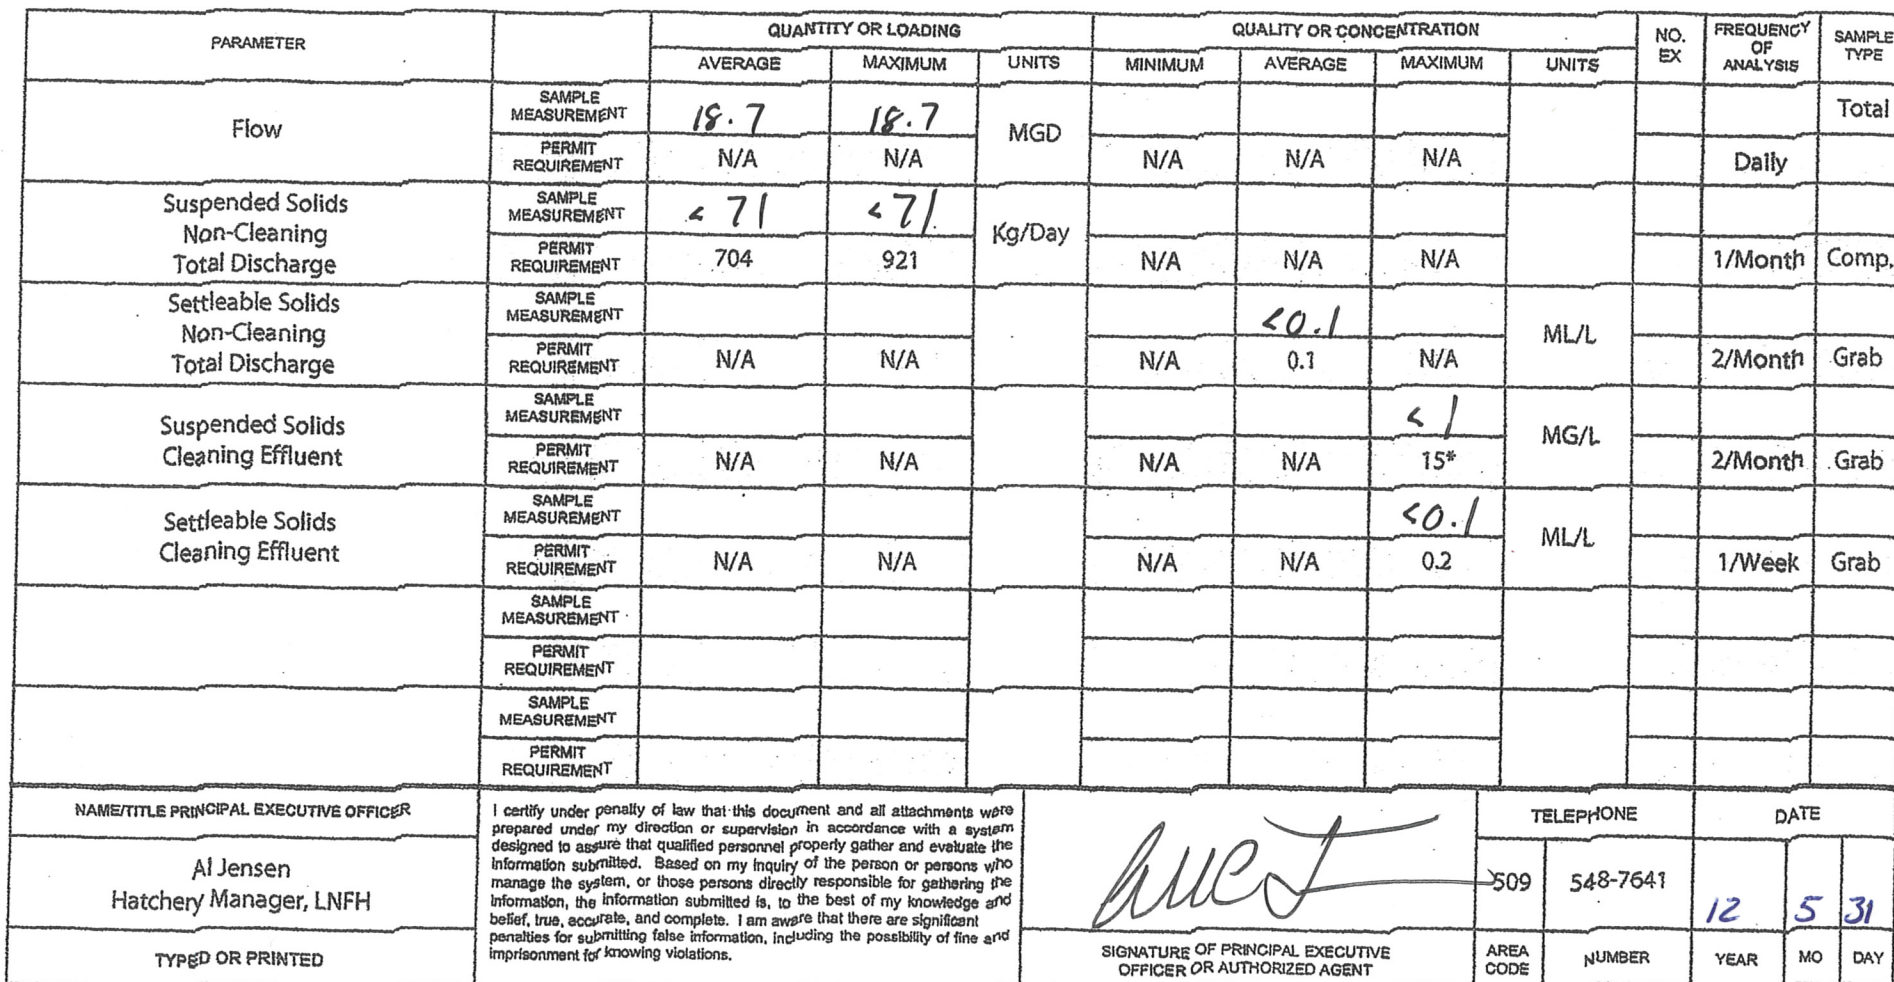 PARAMETER
QUANTITY OR LOADING
QUALITY OR CONCENTRATION
NO. EX
FREQUENCY OF ANALYSIS
SAMPLE TYPE
AVERAGE MAXIMUM UNITS MINIMUM AVERAGE MAXIMUM UNITS
Flow
SAMPLE MEASUREMENT 18.7 18.7 MGD Total
PERMIT REQUIREMENT N/A N/A N/A N/A N/A Daily
Suspended Solids
Non-Cleaning
Total Discharge
SAMPLE MEASUREMENT <71 <71 Kg/Day
PERMIT REQUIREMENT 704 921 N/A N/A N/A 1/Month Comp.
Settleable Solids
Non-Cleaning
Total Discharge
SAMPLE MEASUREMENT <0.1 ML/L
PERMIT REQUIREMENT N/A N/A N/A 0.1 N/A 2/Month Grab
Suspended Solids
Cleaning Effluent
SAMPLE MEASUREMENT <1 MG/L
PERMIT REQUIREMENT N/A N/A N/A N/A 15* 2/Month Grab
Settleable Solids
Cleaning Effluent
SAMPLE MEASUREMENT <0.1 ML/L
PERMIT REQUIREMENT N/A N/A N/A N/A 0.2 1/Week Grab
SAMPLE MEASUREMENT
PERMIT REQUIREMENT
SAMPLE MEASUREMENT
PERMIT REQUIREMENT
NAME/TITLE PRINCIPAL EXECUTIVE OFFICER
Al Jensen
Hatchery Manager, LNFH
TYPED OR PRINTED
I certify under penalty of law that this document and all attachments were
prepared under my direction or supervision in accordance with a system
designed to assure that qualified personnel properly gather and evaluate the
information submitted. Based on my inquiry of the person or persons who
manage the system, or those persons directly responsible for gathering the
information, the information submitted is, to the best of my knowledge and
belief, true, accurate, and complete. I am aware that there are significant
penalties for submitting false information, including the possibility of fine and
imprisonment for knowing violations.
SIGNATURE OF PRINCIPAL EXECUTIVE
OFFICER OR AUTHORIZED AGENT
TELEPHONE
509 548-7641
AREA CODE NUMBER
DATE
12 5 31
YEAR MO DAY